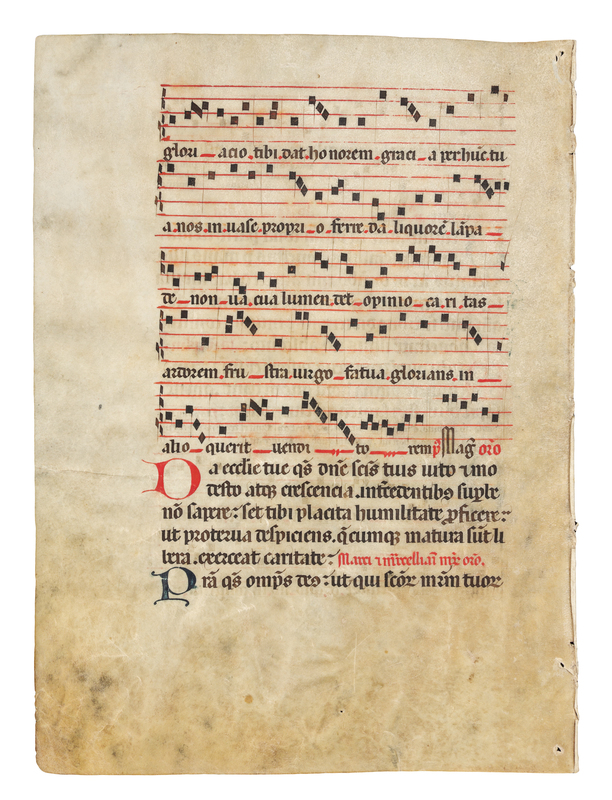 glori acio tibi dat honorem graci a per huc̄ tu
a nos in uase propri o ferre da liquorē lāpa
de non ua cua lumen det opinio ca ri tas
ardorem fru stra uirgo fatua glorians in
alio querit uendi to rem p̄ Mag̅ oro
Da ecclie tue q̄s dn̄e scīs tuis iuto ⁊ mo
desto atq; crescencia intercedentib9 suple
nō sapere: set tibi placita humilitate ꝓficere:
ut proterua despiciens. q̄cumq; matura sūt li
bera. exerceat caritate: Marci ⁊ m̄rcelliani m̄r oro.
Prā q̄s omp̄s de9: ut qui scōr m̄rm tuor